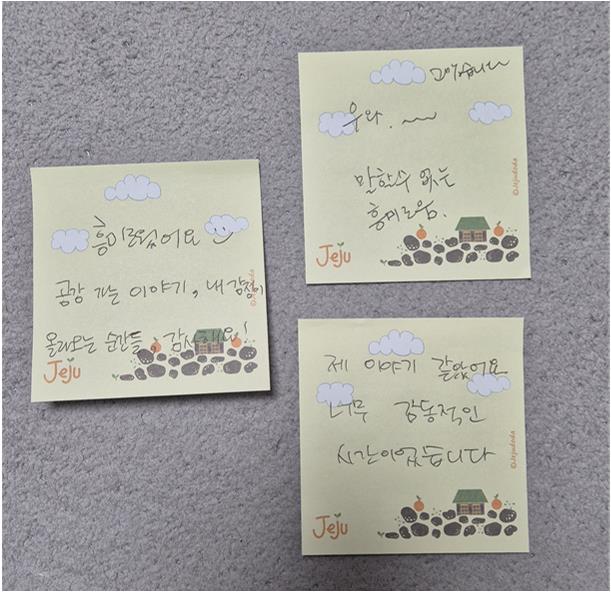 흥미로웠어요
공감 가는 이야기, 내 감정이
올라오는 순간들, 감사해요!
Jeju
©Jejudoda
고맙습니다
우와. ~~
말할수 없는
흥미로움.
Jeju
©Jejudoda
제 이야기 같았어요
너무 감동적인
시간이었습니다
Jeju
©Jejudoda